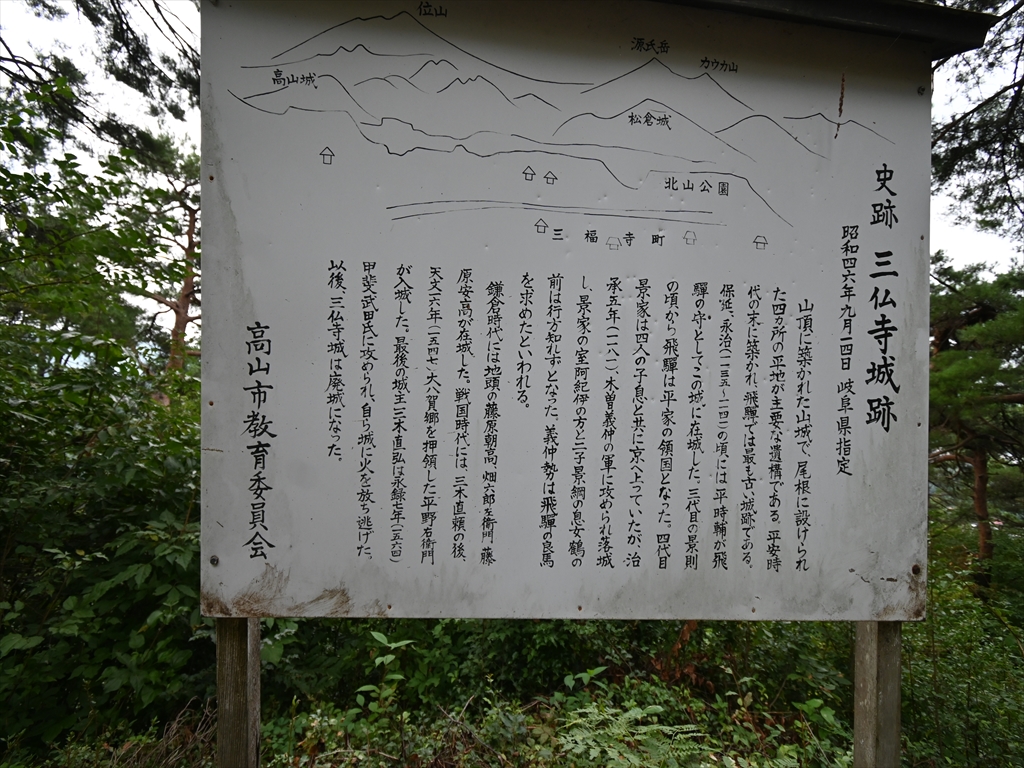 位山
源氏岳
カウカ山
高山城
松倉城
北山公園
三福寺町
史跡 三仏寺城跡
昭和四六年九月一四日 岐阜県指定
山頂に築かれた山城で、尾根に設けられ
た四カ所の平地が主要な遺構である。平安時
代の末に築かれ、飛騨では最も古い城跡である。
保延、永治(一一三五~一一四二)の頃には 平時輔が飛
騨の守としてこの城に在城した。三代目の景則
の頃から飛騨は平家の領国となった。四代目
景家は四人の子息と共に京へ上っていたが、治
承五年(一一八一)、木曽義仲の軍に攻められ落城
し、景家の室阿紀伊の方と二子景綱の息女鶴の
前は行方知れずとなった。義仲勢は飛騨の良馬
を求めたといわれる。
鎌倉時代には地頭の藤原朝高、畑六郎左衛門、藤
原安高が在城した。戦国時代には、三木直頼の後、
天文一六年(一五四七)大八賀郷を押領した平野右衛門
が入城した。最後の城主三木直弘は永録七年(一五六四)
甲斐武田氏に攻められ、自ら城に火を放ち逃げた。
以後、三仏寺城は廃城になった。
高山市教育委員会